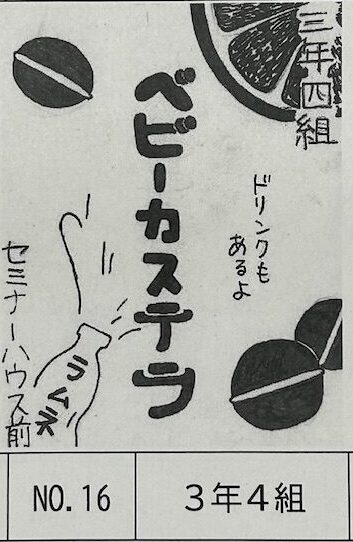 三年四組
ベビーカステラ
ドリンクも
あるよ
ラムネ
セミナーハウス前
NO.16
3年4組